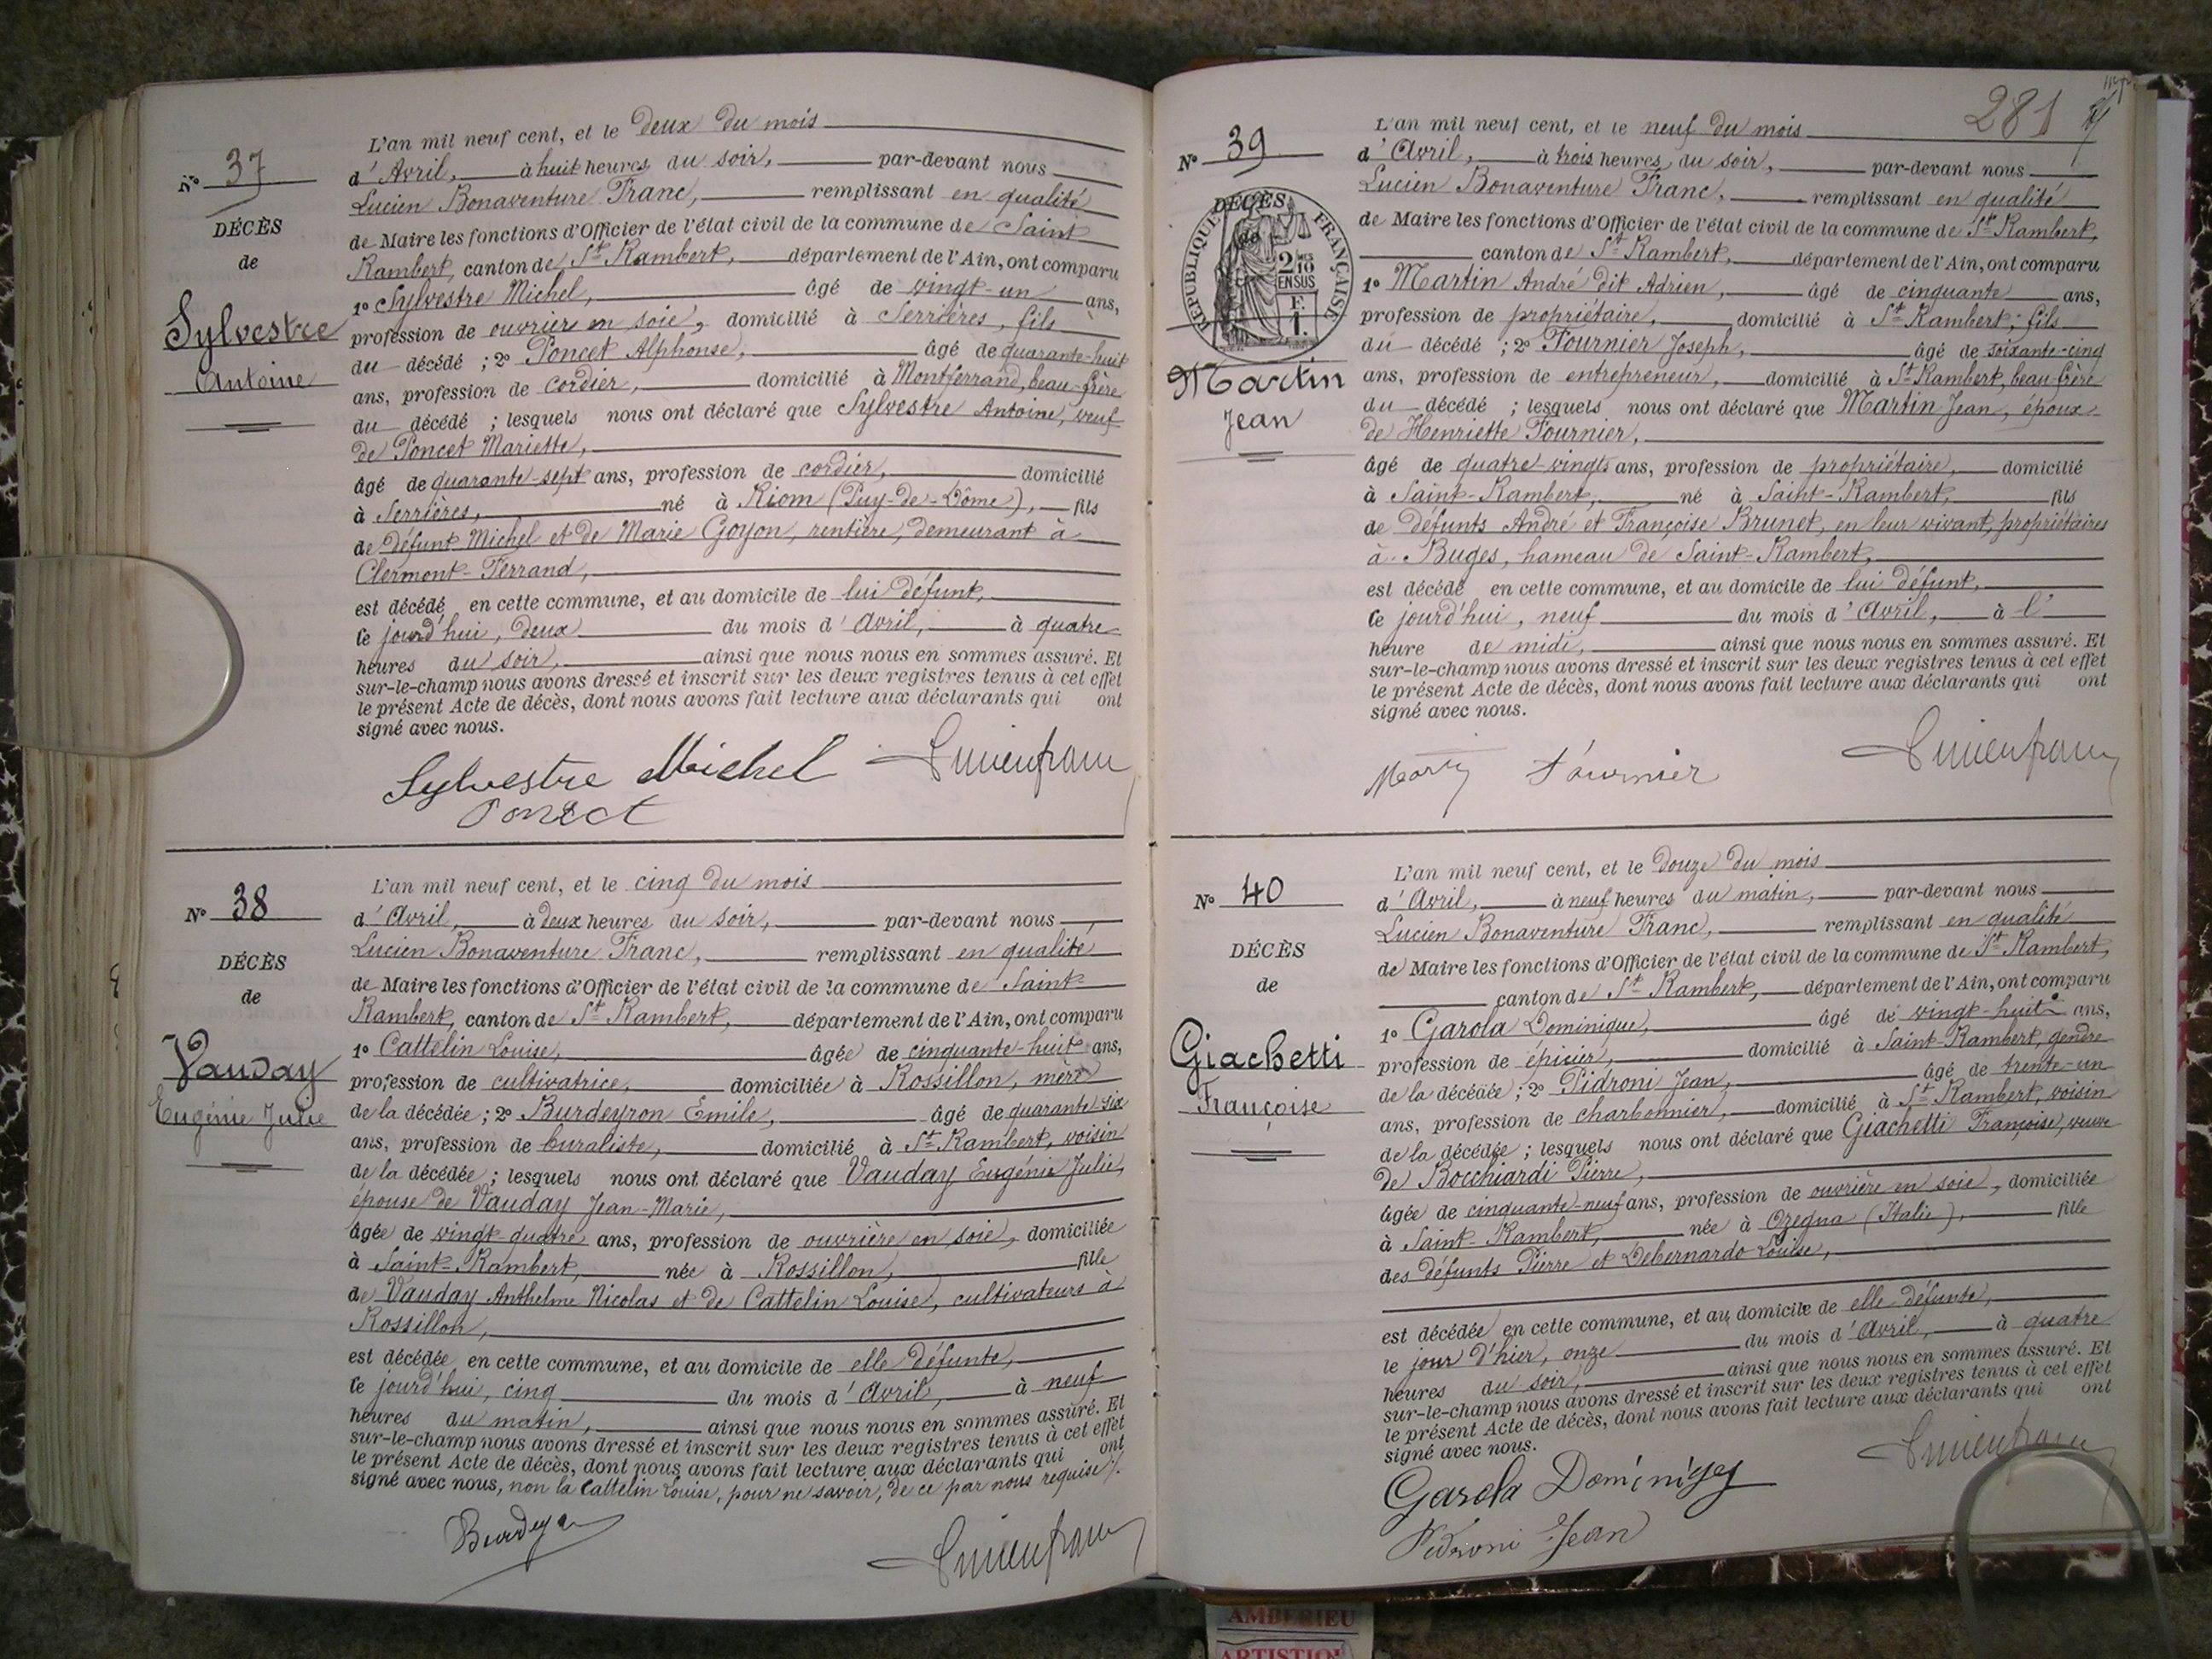 N° 37
DÉCÈS
de
Sylvestre
Antoine
L'an mil neuf cent, et le deux du mois
d'Avril, à huit heures du soir, par-devant nous
Lucien Bonaventure Franc, remplissant en qualité
de Maire les fonctions d'Officier de l'état civil de la commune de Saint
Rambert, canton de St Rambert, département de l'Ain, ont comparu
1° Sylvestre Michel, âgé de vingt-un ans,
profession de ouvrier en soie, domicilié à Serrières, fils
du décédé ; 2° Poncet Alphonse, âgé de quarante-huit
ans, profession de cordier, domicilié à Montferrand, beau-frère
du décédé ; lesquels nous ont déclaré que Sylvestre Antoine, veuf
de Poncet Mariette,
âgé de quarante-sept ans, profession de cordier, domicilié
à Serrières, né à Riom (Puy-de-Dôme), fils
de défunt Michel et de Marie Goyon, rentière, demeurant à
Clermont-Ferrand,
est décédé en cette commune, et au domicile de lui défunt,
ce jourd'hui, deux du mois d'Avril, à quatre
heures du soir, ainsi que nous nous en sommes assuré. Et
sur-le-champ nous avons dressé et inscrit sur les deux registres tenus à cet effet
le présent Acte de décès, dont nous avons fait lecture aux déclarants qui ont
signé avec nous.
Sylvestre Michel Lucien franc
Poncet
N° 38
DÉCÈS
de
Vauday
Eugénie Julie
L'an mil neuf cent, et le cinq du mois
d'Avril, à deux heures du soir, par-devant nous
Lucien Bonaventure Franc, remplissant en qualité
de Maire les fonctions d'Officier de l'état civil de la commune de Saint-
Rambert, canton de St Rambert, département de l'Ain, ont comparu
1° Cattelin Louise, âgée de cinquante-huit ans,
profession de cultivatrice, domiciliée à Rossillon, mère
de la décédée ; 2° Burdeyron Emile, âgé de quarante-six
ans, profession de buraliste, domicilié à St Rambert, voisin
de la décédée ; lesquels nous ont déclaré que Vauday Eugénie Julie,
épouse de Vauday Jean-Marie,
âgée de vingt-quatre ans, profession de ouvrière en soie, domiciliée
à Saint-Rambert, née à Rossillon, fille
de Vauday Anthelme Nicolas et de Cattelin Louise, cultivateurs à
Rossillon,
est décédée en cette commune, et au domicile de elle défunte,
ce jourd'hui, cinq du mois d'Avril, à neuf
heures du matin, ainsi que nous nous en sommes assuré. Et
sur-le-champ nous avons dressé et inscrit sur les deux registres tenus à cet effet
le présent Acte de décès, dont nous avons fait lecture aux déclarants qui ont
signé avec nous, non la Cattelin Louise, pour ne savoir, de ce par nous requise /.
Lucien franc
281
N° 39
DÉCÈS
de
RÉPUBLIQUE FRANÇAISE
2/10 EN SUS
F.
1.
Martin
Jean
L'an mil neuf cent, et le neuf du mois
d'Avril, à trois heures du soir, par-devant nous
Lucien Bonaventure Franc, remplissant en qualité
de Maire les fonctions d'Officier de l'état civil de la commune de St Rambert,
canton de St Rambert, département de l'Ain, ont comparu
1° Martin André dit Adrien, âgé de cinquante ans,
profession de propriétaire, domicilié à St Rambert, fils
du décédé ; 2° Fournier Joseph, âgé de soixante-cinq
ans, profession de entrepreneur, domicilié à St Rambert, beau-frère
du décédé ; lesquels nous ont déclaré que Martin Jean, époux
de Henriette Fournier,
âgé de quatre-vingts ans, profession de propriétaire, domicilié
à Saint-Rambert, né à Saint-Rambert, fils
de défunts André et Françoise Brunet, en leur vivant, propriétaires
à Buges, hameau de Saint-Rambert,
est décédé en cette commune, et au domicile de lui défunt,
ce jourd'hui, neuf du mois d'Avril, à l'
heure de midi, ainsi que nous nous en sommes assuré. Et
sur-le-champ nous avons dressé et inscrit sur les deux registres tenus à cet effet
le présent Acte de décès, dont nous avons fait lecture aux déclarants qui ont
signé avec nous.
Fournier Lucien franc
N° 40
DÉCÈS
de
Giachetti
Françoise
L'an mil neuf cent, et le douze du mois
d'Avril, à neuf heures du matin, par-devant nous
Lucien Bonaventure Franc, remplissant en qualité
de Maire les fonctions d'Officier de l'état civil de la commune de St Rambert,
canton de St Rambert, département de l'Ain, ont comparu
1° Garola Dominique, âgé de vingt-huit ans,
profession de épicier, domicilié à Saint-Rambert, gendre
de la décédée ; 2° Pidroni Jean, âgé de trente-un
ans, profession de charbonnier, domicilié à St Rambert, voisin
de la décédée ; lesquels nous ont déclaré que Giachetti Françoise, veuve
de Bocchiardi Pierre,
âgée de cinquante-neuf ans, profession de ouvrière en soie, domiciliée
à Saint-Rambert, née à Ozegna (Italie), fille
des défunts Pierre et Debernardo Louise,
est décédée en cette commune, et au domicile de elle défunte,
le jour d'hier, onze du mois d'Avril, à quatre
heures du soir, ainsi que nous nous en sommes assuré. Et
sur-le-champ nous avons dressé et inscrit sur les deux registres tenus à cet effet
le présent Acte de décès, dont nous avons fait lecture aux déclarants qui ont
signé avec nous.
Lucien franc
Garola
Jean
AMBERIEU